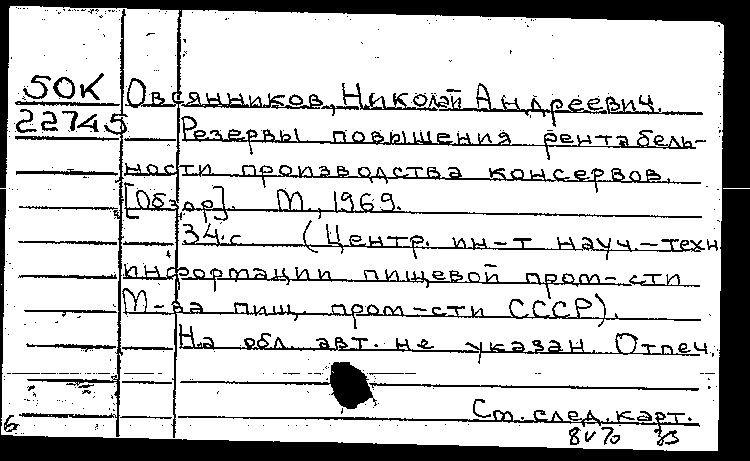 50К Овсянников, Николай Андреевич.
22745 Резервы повышения рентабель-
ности производства консервов.
[Обзор]. М., 1969.
34 с. (Центр. ин-т науч.-техн.
информации пищевой пром-сти
М-ва пищ. пром-сти СССР).
На обл. авт. не указан. Отпеч.
См. след. карт.
6